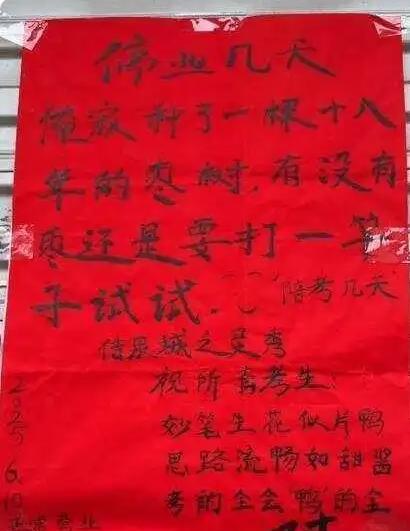 停业几天
俺家种了一棵十八
年的枣树,有没有
枣还是要打一竿
子试试.
陪考几天
祝所有考生:
妙笔生花似片鸭
思路流畅如甜酱
考的全会鸭的全
正常营业